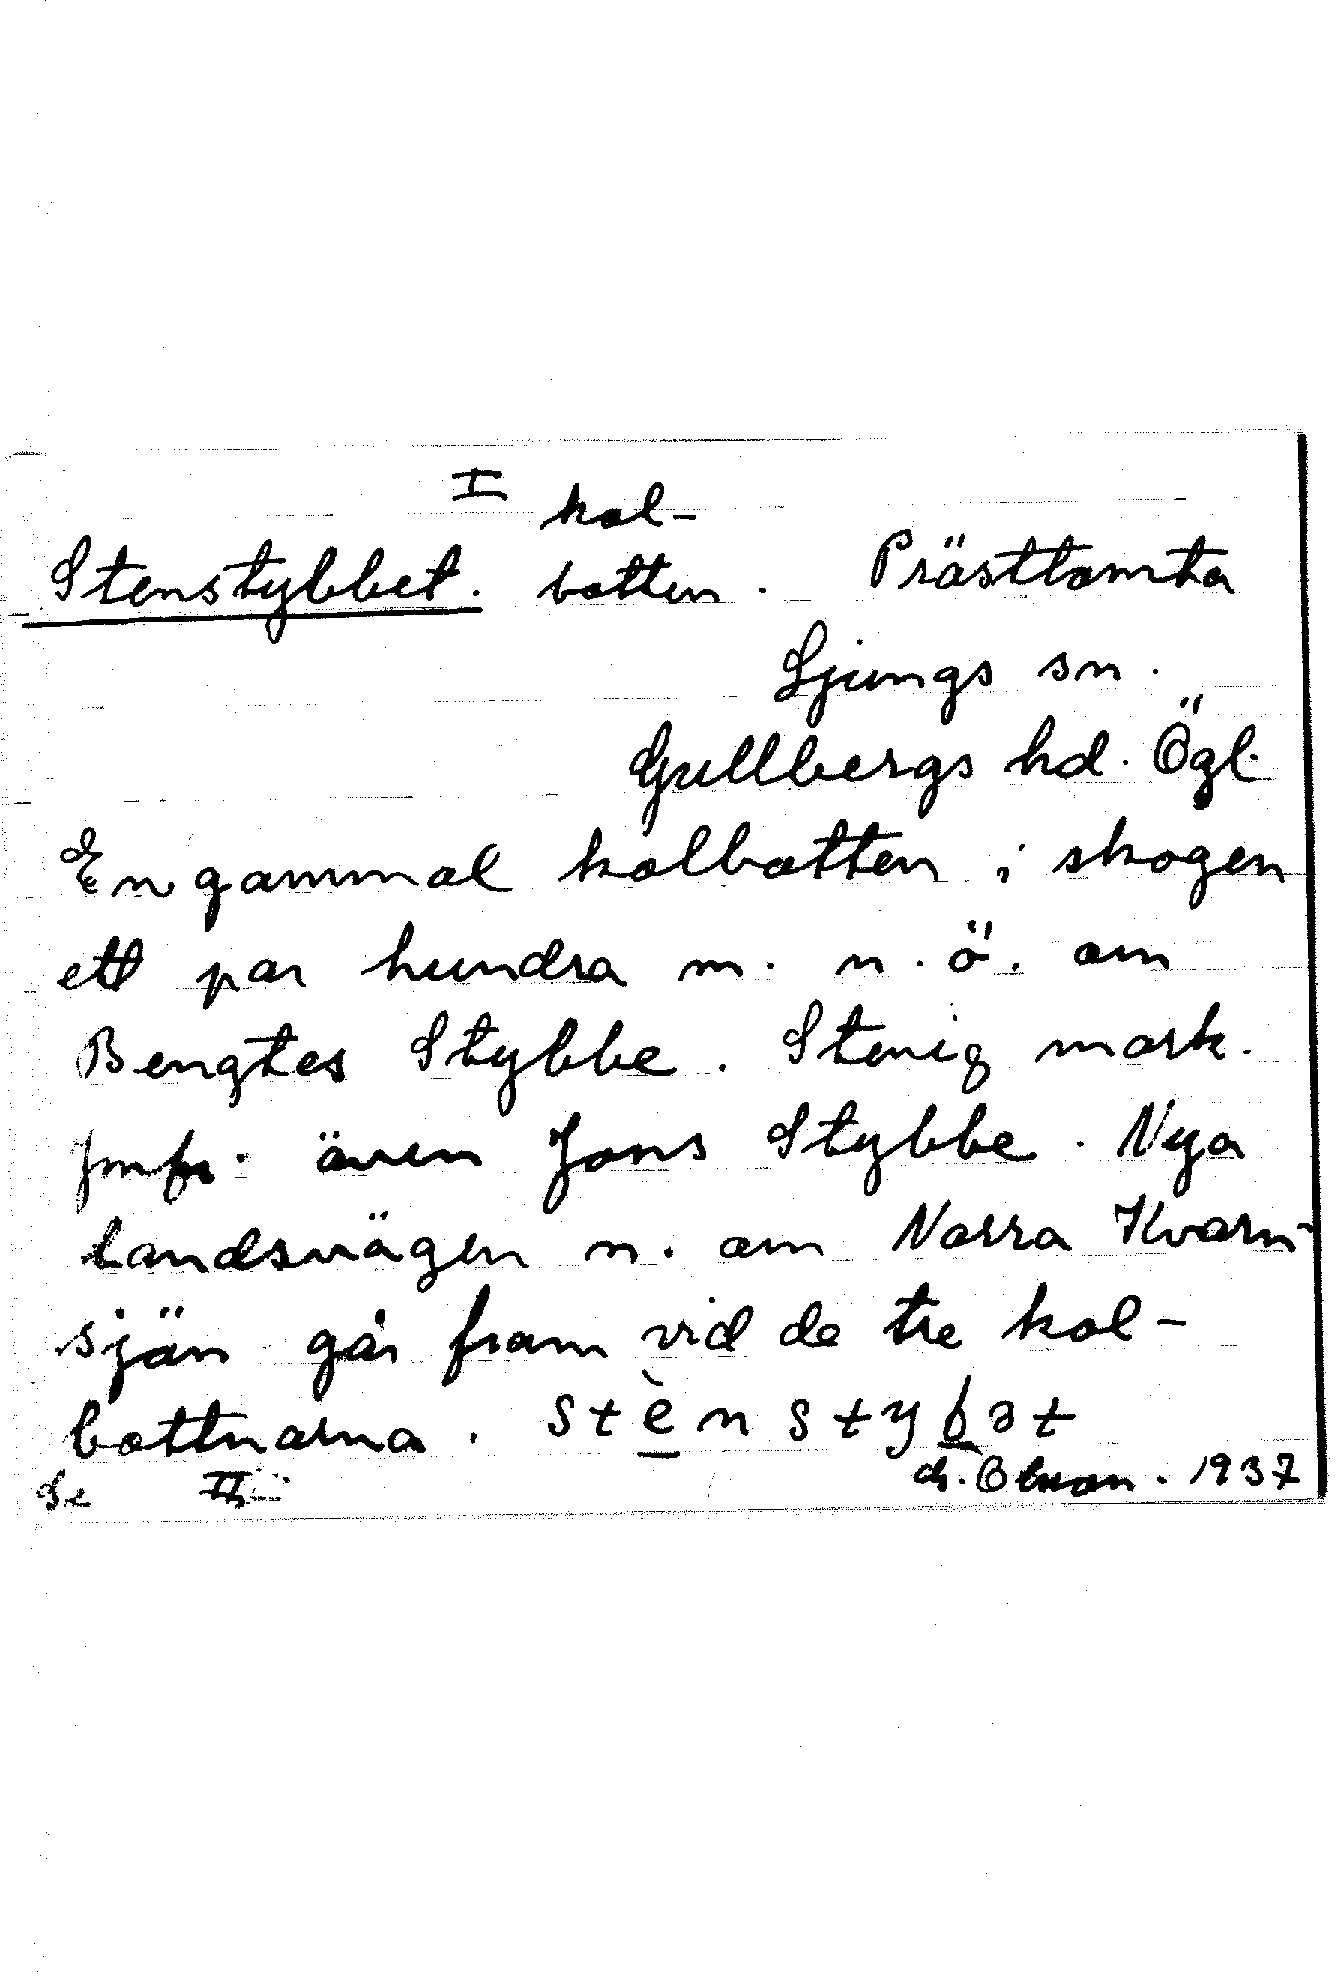 I kol-
Stenstybbet. botten. Prästtomta
Ljungs sn.
Gullbergs hd. Ögl.
En gammal kolbotten i skogen
ett par hundra m. n. ö. om
Bengtes Stybbe. Stenig mark.
Jmfr. även Jons Stybbe. Nya
landsvägen n. om Norra Kvarn-
sjön går fram vid de tre kol-
bottnarna. stènstybət
Se II 1937